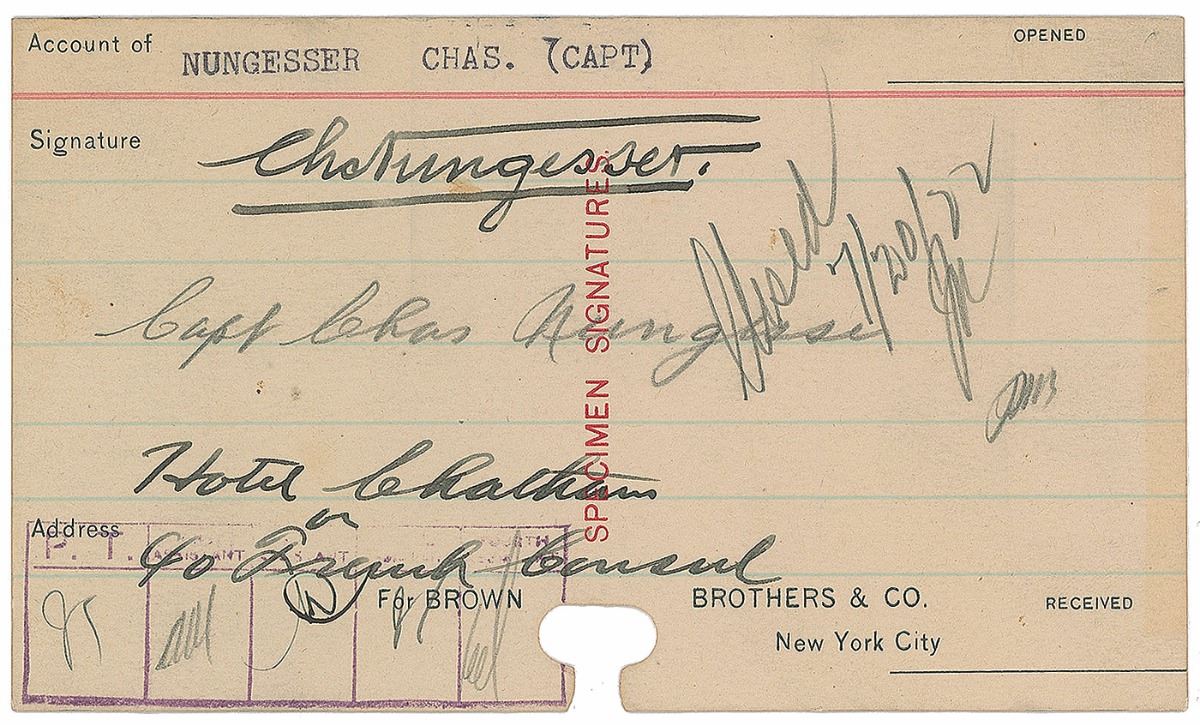 Account of NUNGESSER CHAS. (CAPT) OPENED
Signature ChNungesser.
SPECIMEN SIGNATURES
Closed 7/20/22
Capt Chas Nungesser
Hotel Chatham
or
Address c/o French Consul
P. T. ASSISTANT FOURTH
For BROWN BROTHERS & CO. RECEIVED
New York City